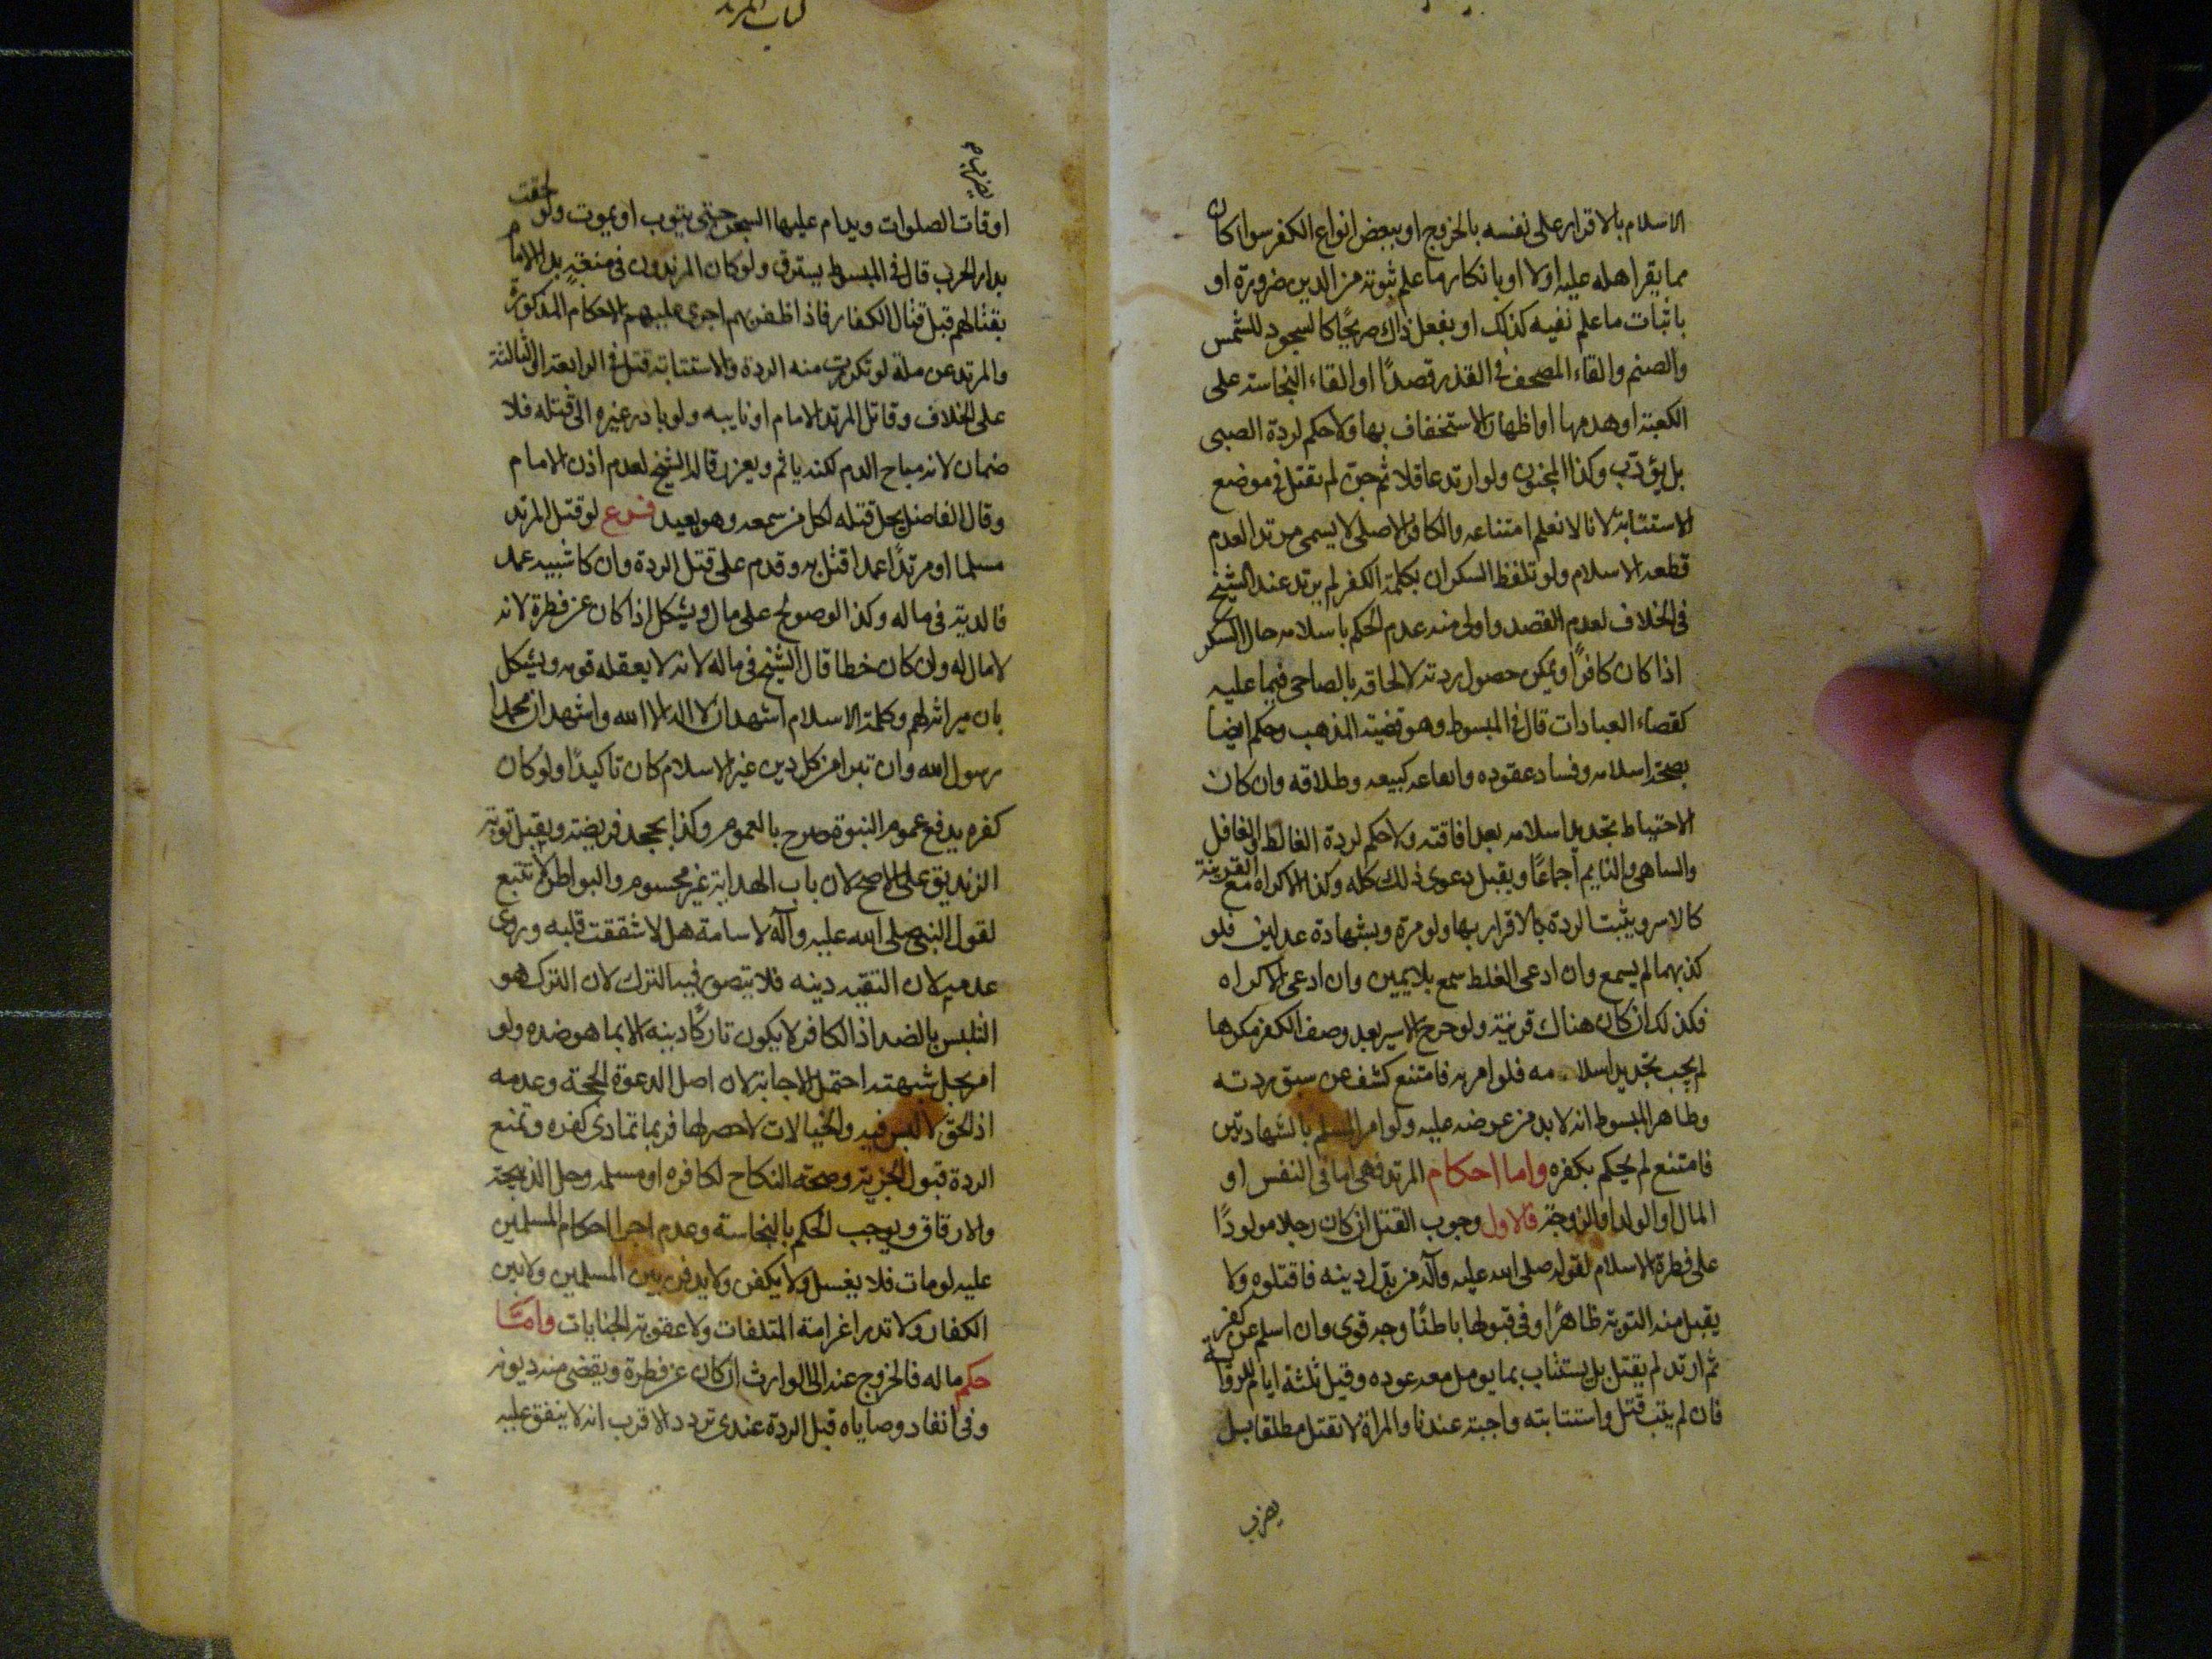 الاسلام بالاقرار على نفسه بالخروج او ببعض انواع الكفر سوا كان
مما يقر اهله عليه او لا او بانكار ما علم ثبوته من الدين ضرورة او
باثبات ما علم نفيه كذلك او بفعل دال صريحًا كالسجود للشمس
والصنم والقاء المصحف في القذر قصدًا او القاء النجاسة على
الكعبة او هدمها او اظهار الاستخفاف بها ولا حكم لردة الصبي
بل يؤدّب وكذا المجنون ولو ارتد عاقلا ثم جنّ لم يقتل في موضع
الاستتابة لانا لا نعلم امتناعه والكافر الاصلى لا يسمى مرتدا لعدم
قطعه الاسلام ولو تلفظ السكران بكلمة الكفر لم يرتد عند الشيخ
في الخلاف لعدم القصد واولى منه عدم الحكم باسلامه حال السكر
اذا كان كافرًا ويمكن حصول ردته لالحاقه بالصاحي فيما عليه
كقضاء العبادات قال في المبسوط وهو قضية المذهب وحكم ايضا
بصحة اسلامه وفساد عقوده وايقاعه كبيعه وطلاقه وان كان
الاحتياط تجديد اسلامه بعد افاقته ولا حكم لردة الغالط والغافل
والساهي والنايم اجماعًا ويقبل دعوى ذلك كله وكذا الاكراه مع القرينة
كالاسر ويثبت الردة بالاقرار بها ولو مرة وبشهادة عدلين فلو
كذبهما لم يسمع وان ادعى الغلط سمع بلا يمين وان ادعى الاكراه
فكذلك ان كان هناك قرينة ولو خرج الاسير بعد وصف الكفر مكرها
لم يجب تجديد اسلامه فلو امر به فامتنع كشف عن سبق ردته
وظاهر المبسوط انه لا بد من عرضه عليه ولو امر المسلم بالشهادتين
فامتنع لم يحكم بكفره واما احكام المرتد فهي اما في النفس او
المال او الولد او الزوجة فالاول وجوب القتل ان كان رجلا مولودًا
على فطرة الاسلام لقوله صلى الله عليه وآله من بدّل دينه فاقتلوه ولا
يقبل منه التوبة ظاهرًا وفي قبولها باطنًا وجه قوى وان اسلم عن كفر
ثم ارتد لم يقتل بل يستتاب بما يومل معه عوده وقيل ثلثة ايام للرواية
فان لم يتب قتل واستتابته واجبة عندنا والمرأة لا تقتل مطلقا بل
يضرب
كتاب المرتد
يضرب
اوقات الصلوات ويدام عليها السجن حتى يتوب او يموت ولو لحقت
بدار الحرب قال في المبسوط يسترق ولو كان المرتدون في منعة بدا الامام
بقتالهم قبل قتال الكفار فاذا ظفر بهم اجرى عليهم الاحكام المذكورة
والمرتد عن ملة لو تكررت منه الردة والاستتابة قتل في الرابعة او الثالثة
على الخلاف وقاتل المرتد الامام او نايبه ولو بادر غيره الى قتله فلا
ضمان لانه مباح الدم لكنه ياثم ويعزر قاله الشيخ لعدم اذن الامام
وقال الفاضل يحل قتله لكل من سمعه وهو بعيد فرع لو قتل المرتد
مسلما او مرتدًا عمدا قتل به وقدم على قتل الردة وان كا شبيه عمد
فالدية في ماله وكذا لو صولح على مال ويشكل اذا كان عن فطرة لانه
لا مال له وان كان خطا قال الشيخ في ماله لانه لا يعقله قومه ويشكل
بان ميراثه لهم وكلمة الاسلام اشهد ان لا اله الا الله واشهد ان محمدا
رسول الله وان تبرا من كل دين غير الاسلام كان تاكيدًا ولو كان
كفره بدفع عموم النبوة صرح بالعموم وكذا بجحد فريضة ويقبل توبة
الزنديق على الاصح لان باب الهداية غير محسوم والبواطن لا تتبع
لقول النبي صلى الله عليه وآله لاسامة هلا شققت قلبه وروى
عدمه لان التقية دينه فلا يتصور فيها الترك لان الترك هو
التلبس بالضد اذ الكافر لا يكون تاركًا دينه الا بما هو ضده ولو
امر بحل شبهته احتمل الاجابة لان اصل الدعوة الحجة وعدمه
اذ الحق لا لبس فيه والخيالات لا حصر لها فربما تمادى كفره وتمنع
الردة قبول الجزية وصحة النكاح لكافره او مسلمه وحل الذبيحة
والارقاق ويوجب الحكم بالنجاسة وعدم اجرا احكام المسلمين
عليه لو مات فلا يغسل ولا يكفن ولا يدفن بين المسلمين ولا بين
الكفار ولا تدرا غرامة المتلفات ولا عقوبة الجنايات وامّا
حكم ماله فالخروج عنه الى الوارث ان كان عن فطرة ويقضى منه ديونه
وفي انفاد وصاياه قبل الردة عندى تردد الاقرب انه لا ينفق عليه